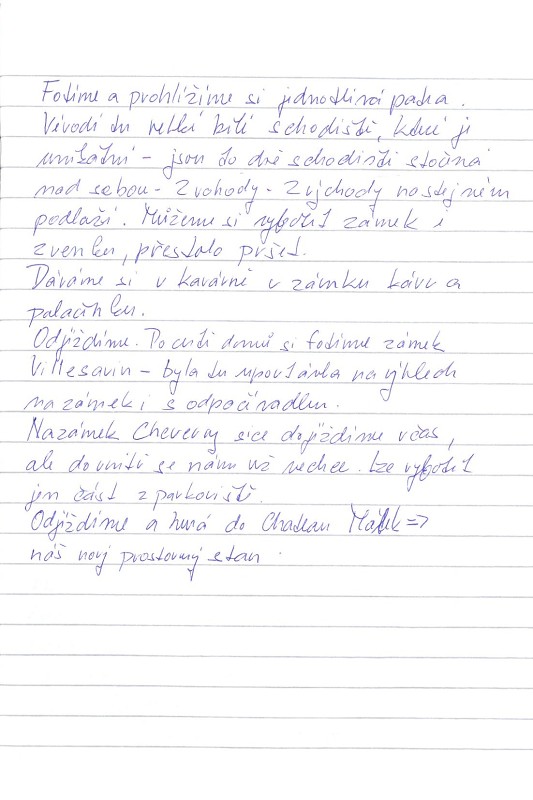 Fotíme a prohlížíme si jednotlivá patra.
Vévodí tu velké bílé schodiště, které je
unikátní - jsou to dvě schodiště stočená
nad sebou - 2 vchody - 2 východy na stejném
podlaží. Můžeme si vyfotit zámek i
zvenku, přestalo pršet.
Dáváme si v kavárně v zámku kávu a
palačinku.
Odjíždíme. Po cestě domů si fotíme zámek
Villesavin - byla tu upoutávka na výhled
na zámek i s odpočívadlem.
Na zámek Cheverny sice dojíždíme včas,
ale dovnitř se nám už nechce. Lze vyfotit
jen část z parkoviště.
Odjíždíme a hurá do Chateau =>
náš nový prostorný stan.